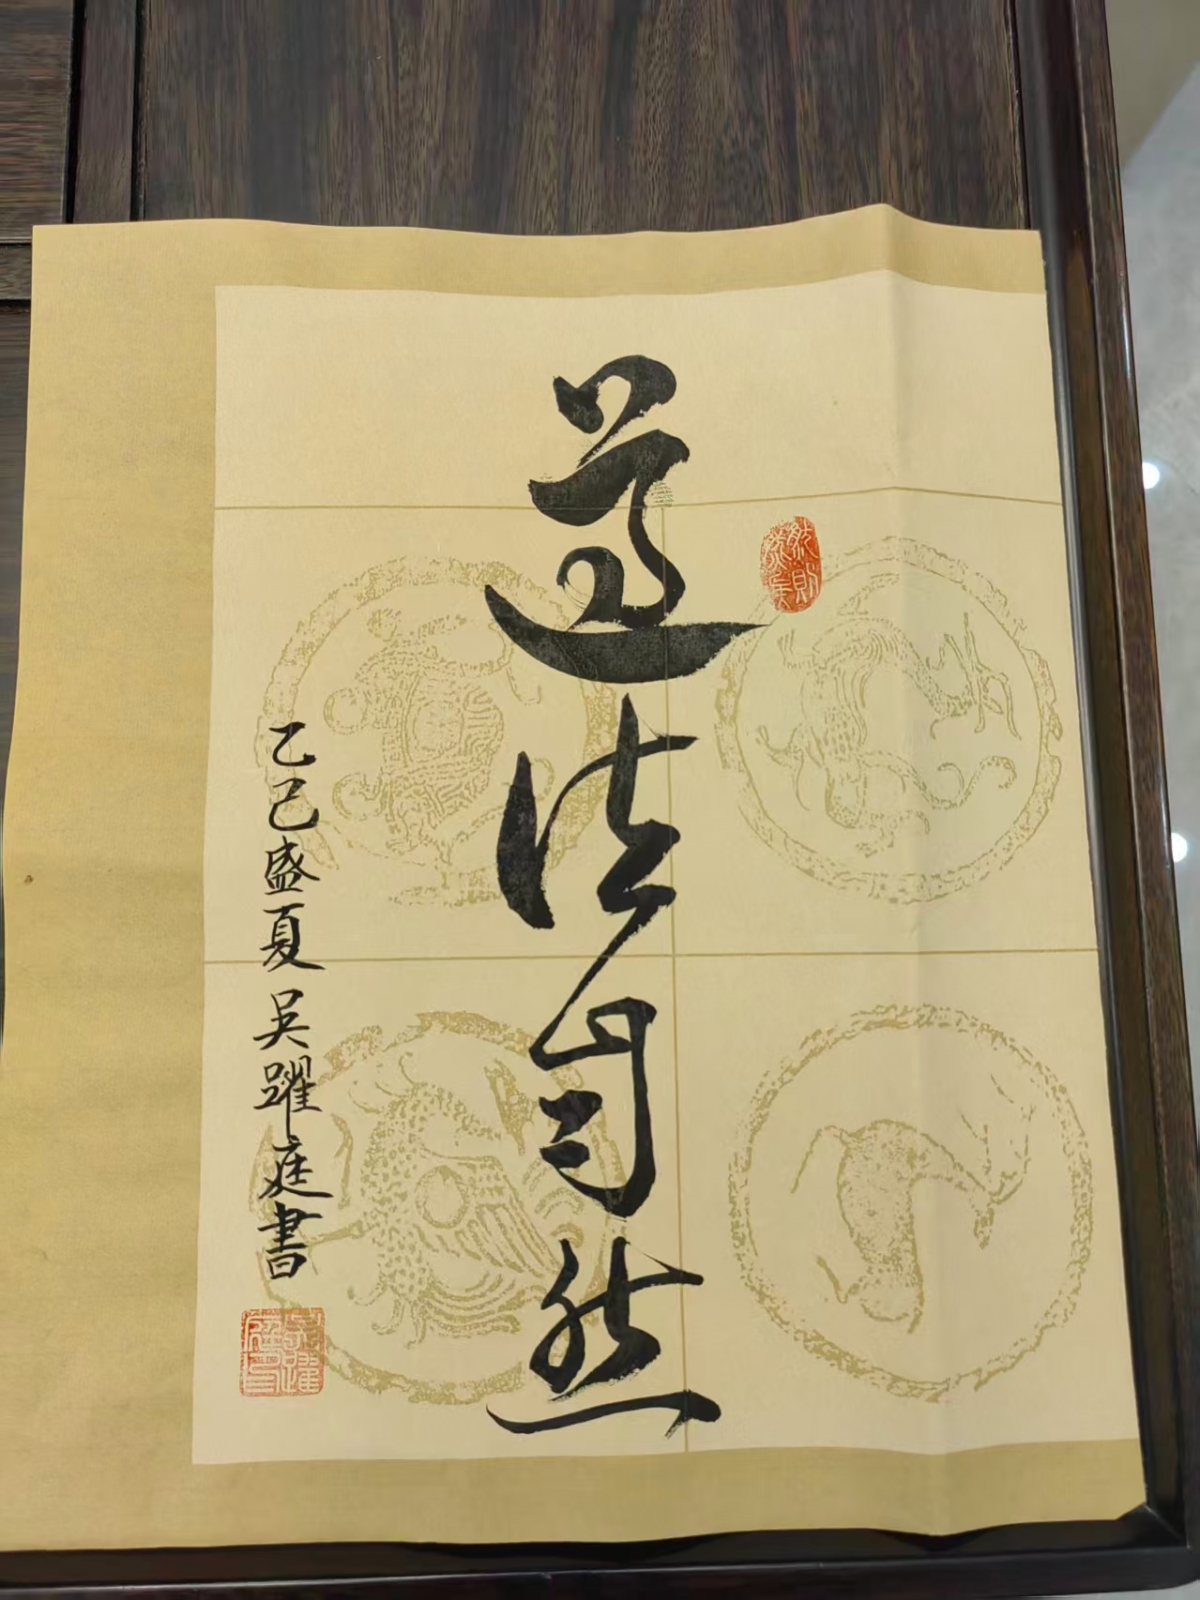 道法自然
乙巳盛夏 吴躍庭書